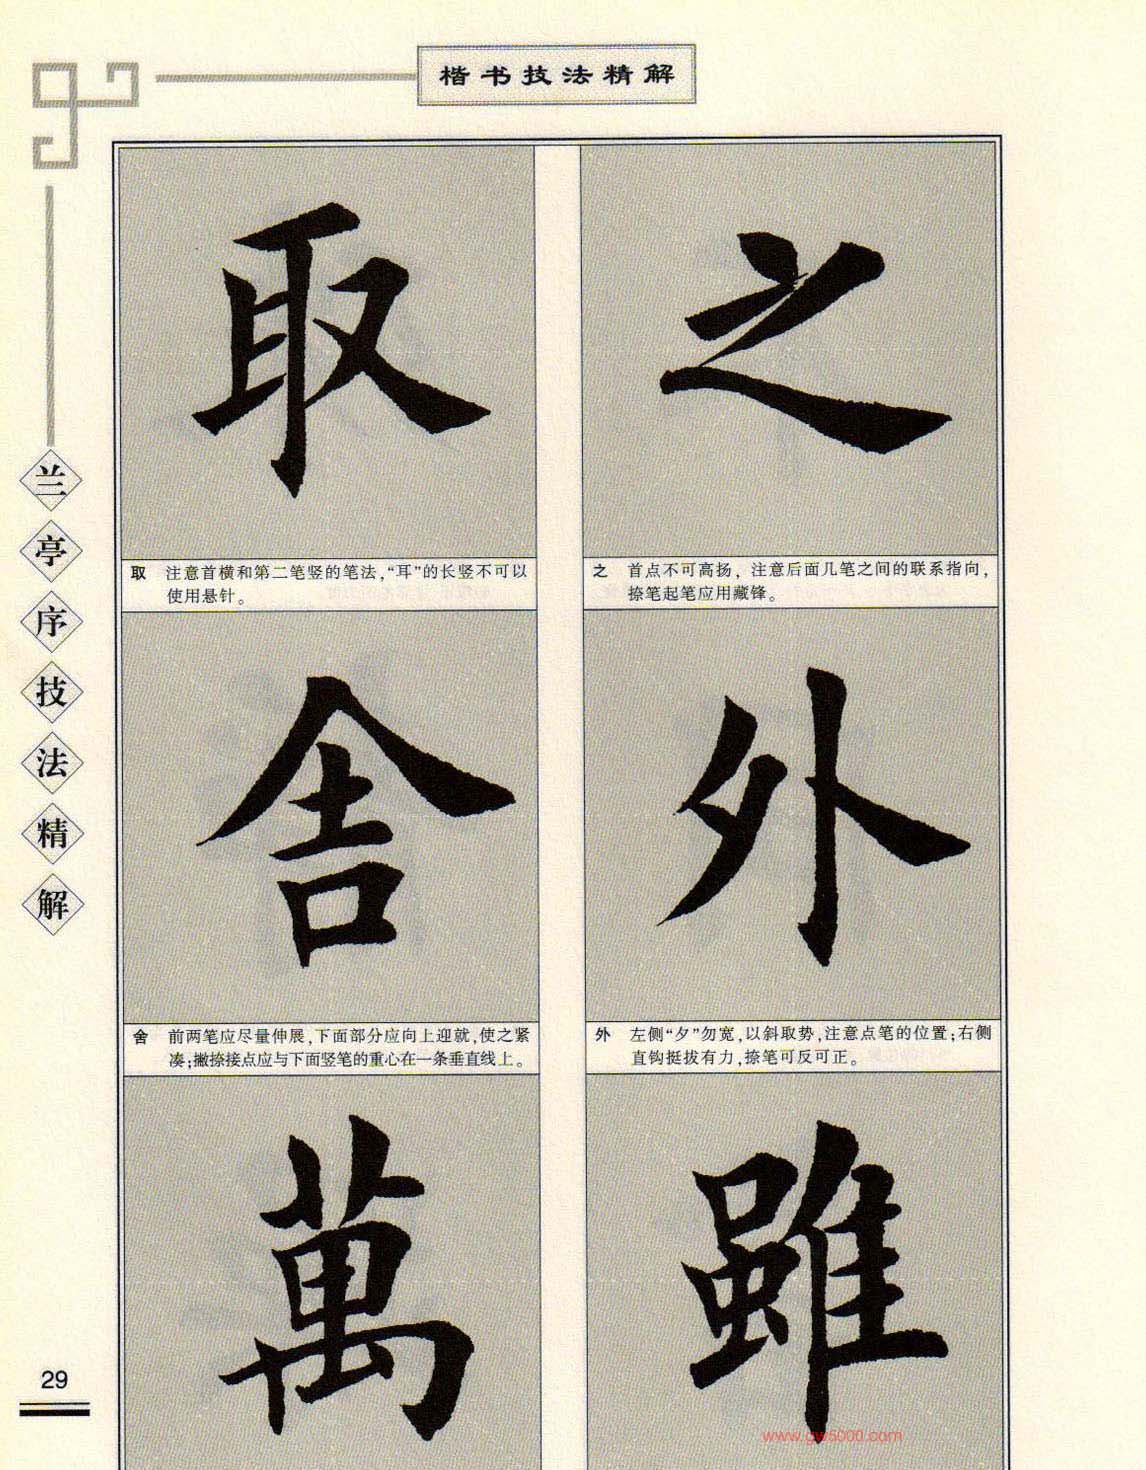 楷书技法精解
兰亭序技法精解
取
之
取 注意首横和第二笔竖的笔法，“耳”的长竖不可以
使用悬针。
之 首点不可高扬，注意后面几笔之间的联系指向，
捺笔起笔应用藏锋。
舍
外
舍 前两笔应尽量伸展，下面部分应向上迎就，使之紧
凑；撇捺接点应与下面竖笔的重心在一条垂直线上。
外 左侧“夕”勿宽，以斜取势，注意点笔的位置；右侧
直钩挺拔有力，捺笔可反可正。
萬
雖
29
www.gw5000.com